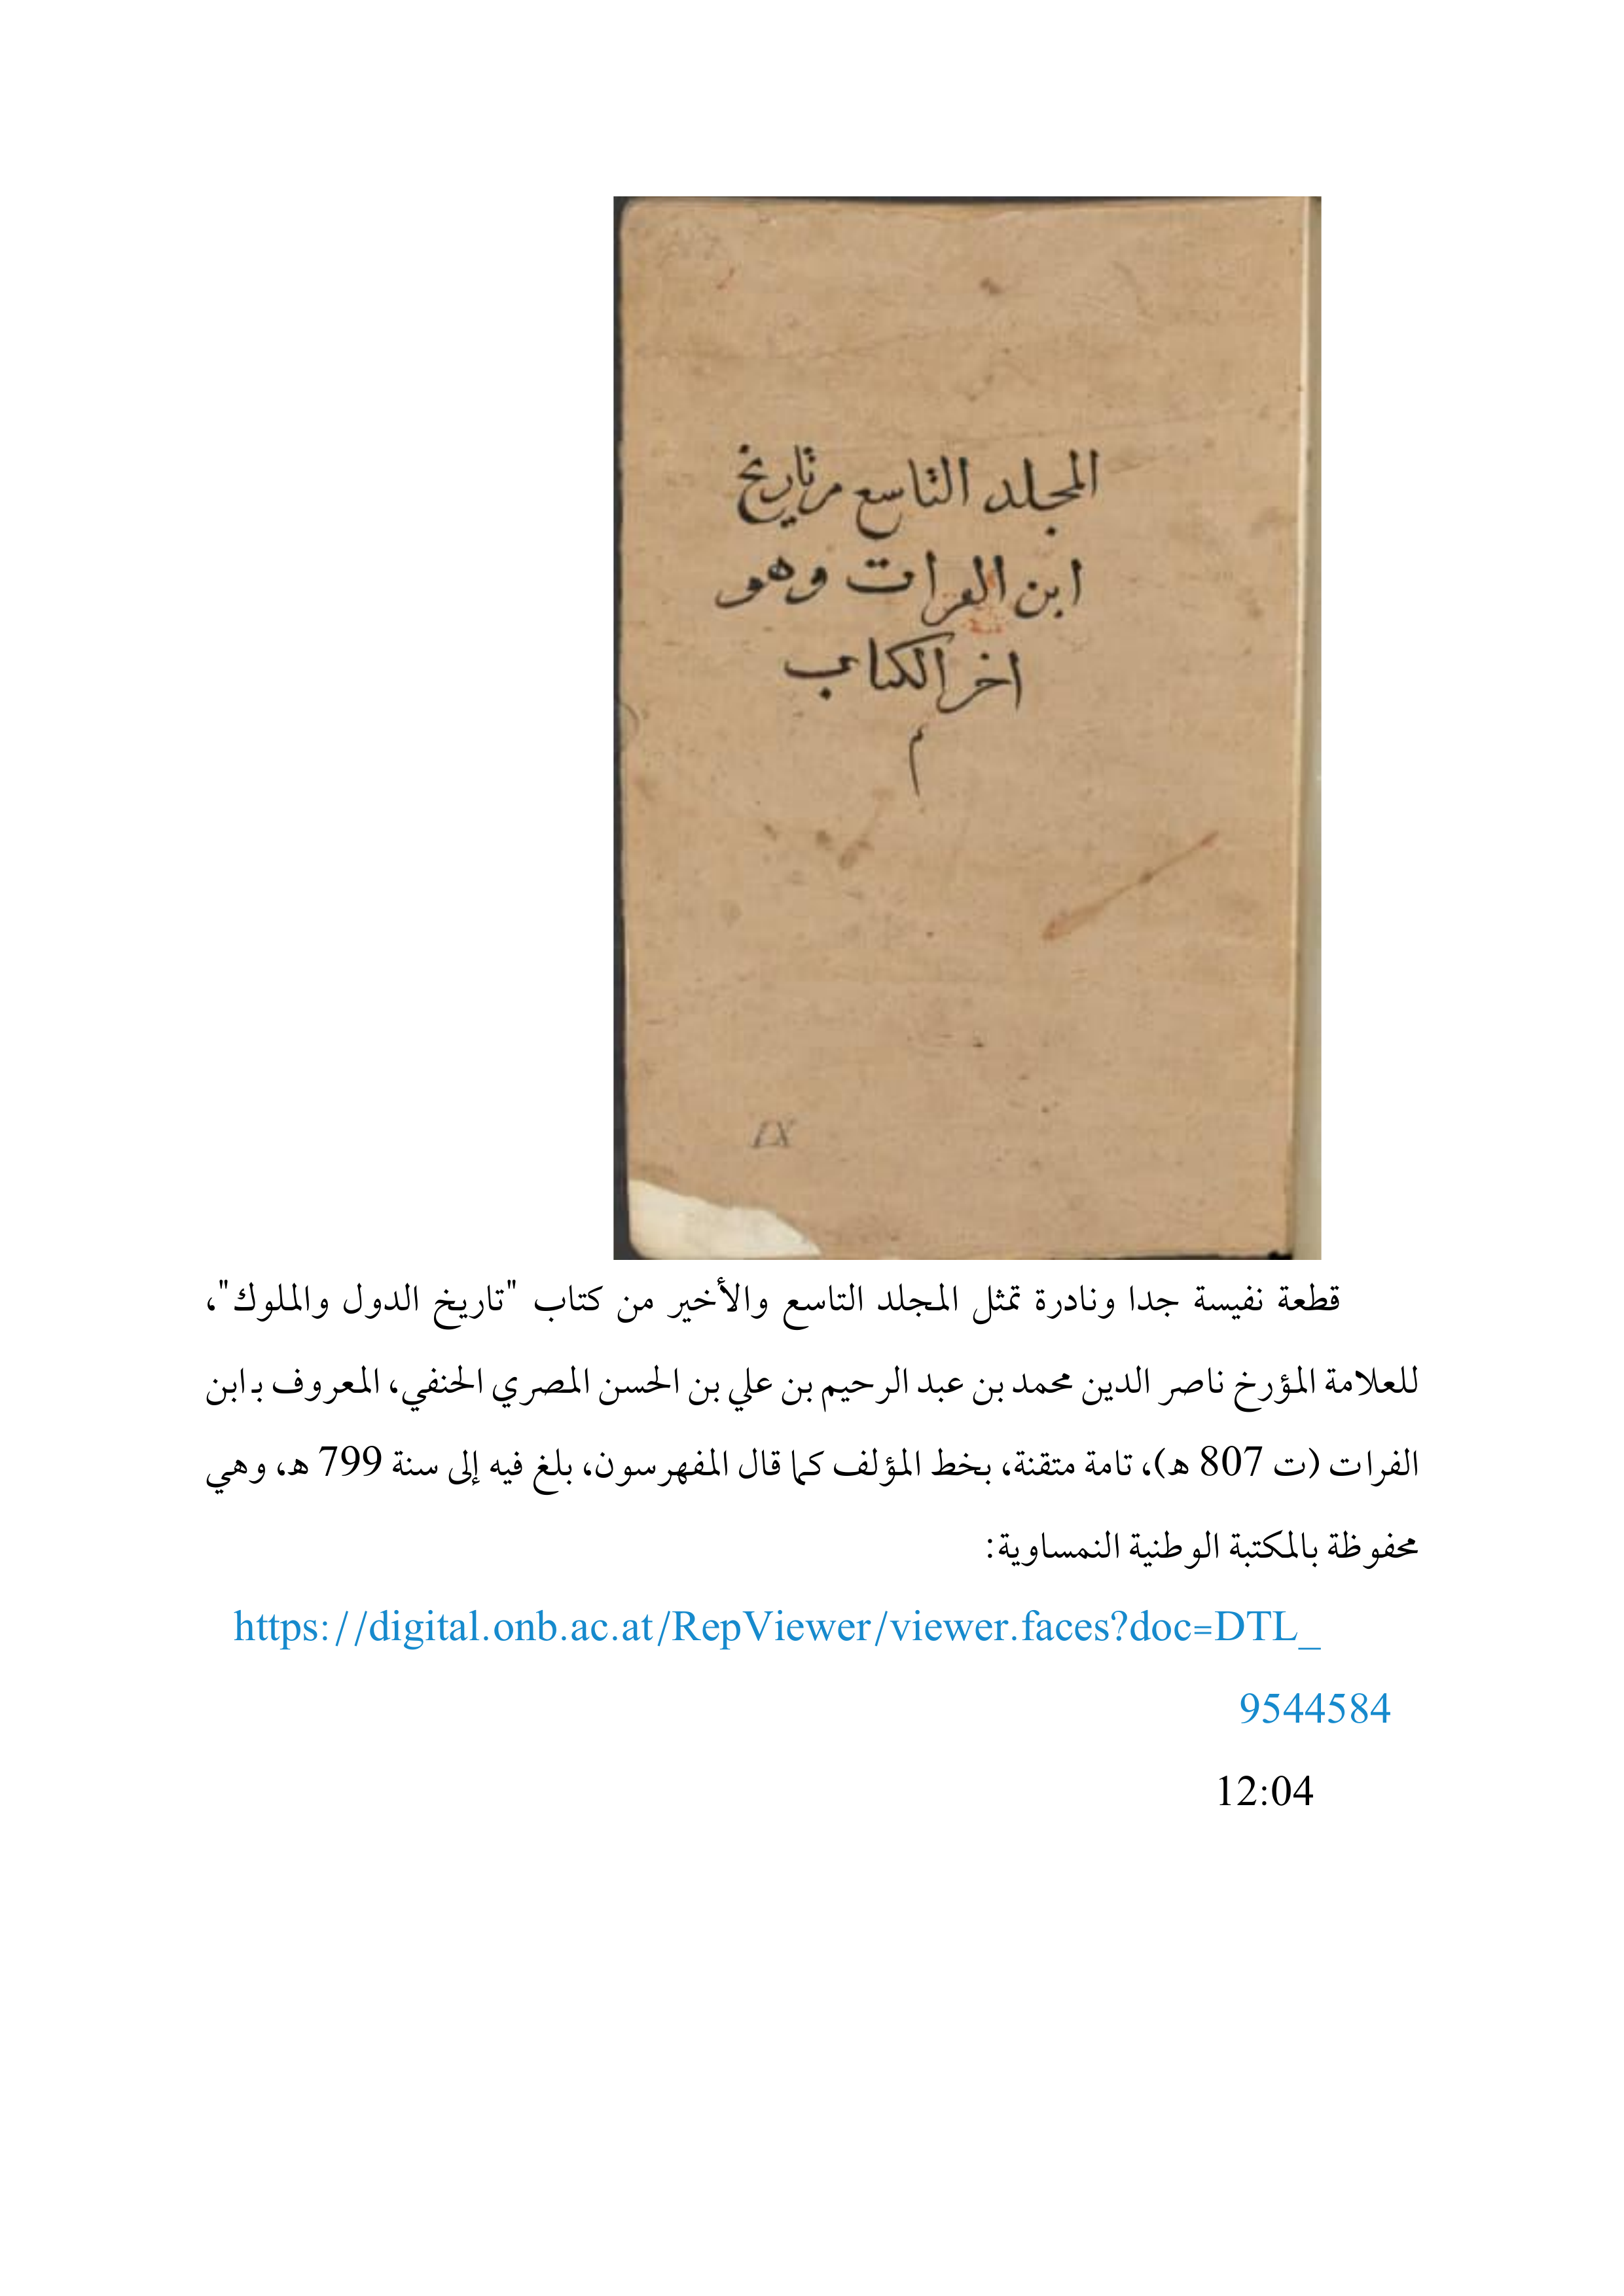 المجلد التاسع من تاريخ
ابن الفرات وهو
اخر الكتاب
م
IX
قطعة نفيسة جدا ونادرة تمثل المجلد التاسع والأخير من كتاب "تاريخ الدول والملوك"،
للعلامة المؤرخ ناصر الدين محمد بن عبد الرحيم بن علي بن الحسن المصري الحنفي، المعروف بـابن
الفرات (ت 807 هـ)، تامة متقنة، بخط المؤلف كما قال المفهرسون، بلغ فيه إلى سنة 799 هـ، وهي
محفوظة بالمكتبة الوطنية النمساوية:
https://digital.onb.ac.at/RepViewer/viewer.faces?doc=DTL_
9544584
12:04